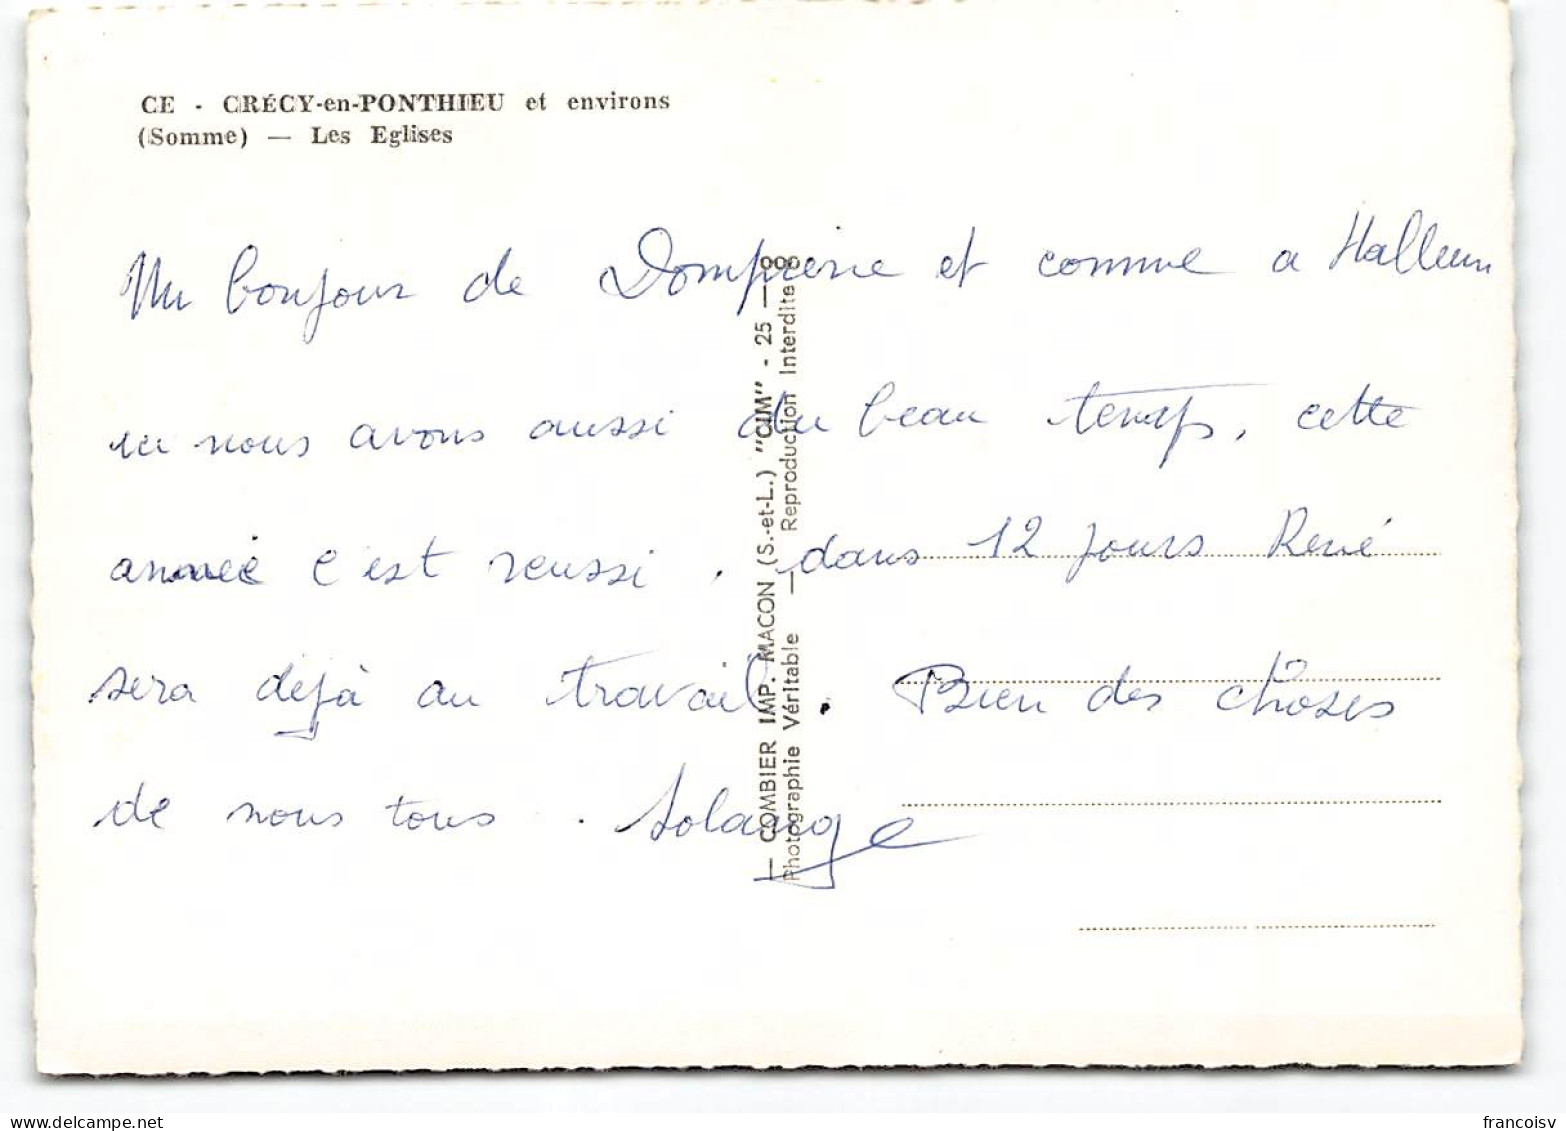 CE - CRÉCY-en-PONTHIEU et environs
(Somme) — Les Eglises
Un bonjour de Dompierre et comme a Halluin
ici nous avons aussi du beau temps, cette
année c'est reussi. dans 12 jours René
sera dejà au travail. Bien des choses
de nous tous. Solange
— COMBIER IMP. MACON (S.-et-L.) "CIM" - 25 —
Photographie Véritable — Reproduction Interdite
delcampe.net
francoisv